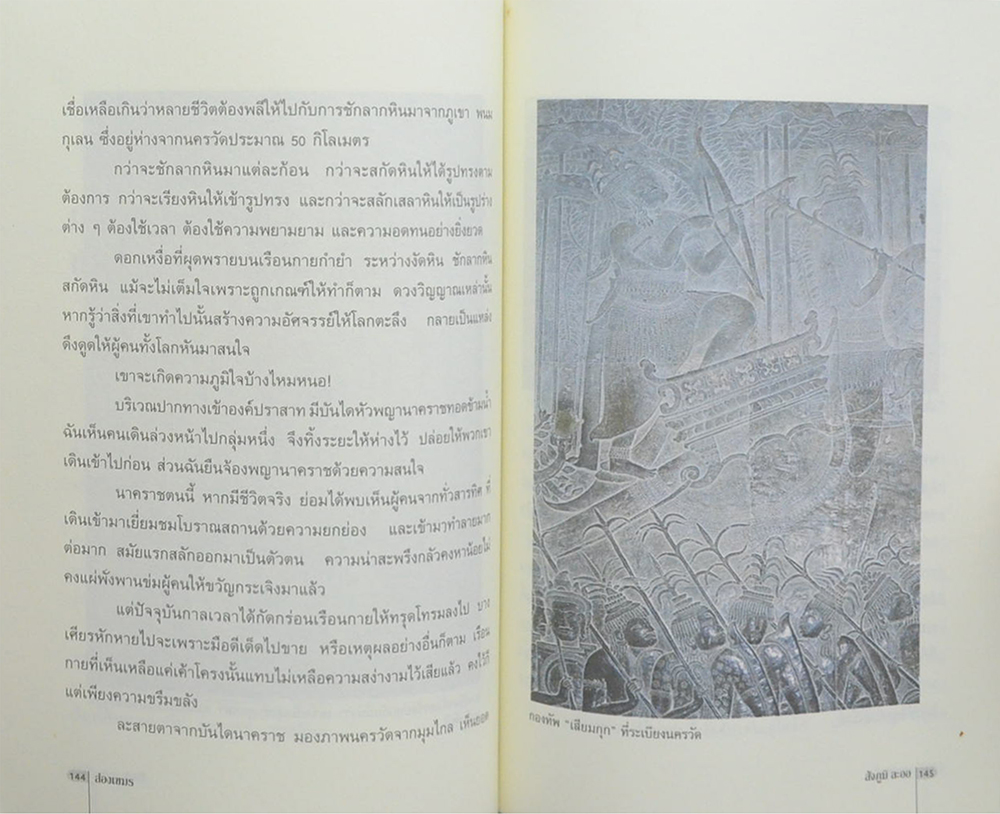 เชื่อเหลือเกินว่าหลายชีวิตต้องพลีให้ไปกับการชักลากหินมาจากภูเขา พนม
กุเลน ซึ่งอยู่ห่างจากนครวัดประมาณ 50 กิโลเมตร
กว่าจะชักลากหินมาแต่ละก้อน กว่าจะสกัดหินให้ได้รูปทรงตาม
ต้องการ กว่าจะเรียงหินให้เข้ารูปทรง และกว่าจะสลักเสลาหินให้เป็นรูปร่าง
ต่าง ๆ ต้องใช้เวลา ต้องใช้ความพยายาม และความอดทนอย่างยิ่งยวด
ดอกเหงื่อที่ผุดพรายบนเรือนกายกำยำ ระหว่างงัดหิน ชักลากหิน
สกัดหิน แม้จะไม่เต็มใจเพราะถูกเกณฑ์ให้ทำก็ตาม ดวงวิญญาณเหล่านั้น
หากรู้ว่าสิ่งที่เขาทำไปนั้นสร้างความอัศจรรย์ให้โลกตะลึง กลายเป็นแหล่ง
ดึงดูดให้ผู้คนทั้งโลกหันมาสนใจ
เขาจะเกิดความภูมิใจบ้างไหมหนอ!
บริเวณปากทางเข้าองค์ปราสาท มีบันไดหัวพญานาคราชทอดข้ามน้ำ
ฉันเห็นคนเดินล่วงหน้าไปกลุ่มหนึ่ง จึงทิ้งระยะให้ห่างไว้ ปล่อยให้พวกเขา
เดินเข้าไปก่อน ส่วนฉันยืนจ้องพญานาคราชด้วยความสนใจ
นาคราชตนนี้ หากมีชีวิตจริง ย่อมได้พบเห็นผู้คนจากทั่วสารทิศ ที่
เดินเข้ามาเยี่ยมชมโบราณสถานด้วยความยกย่อง และเข้ามาทำลายมาก
ต่อมาก สมัยแรกสลักออกมาเป็นตัวตน ความน่าสะพรึงกลัวคงหาน้อยไม่
คงแผ่พังพานข่มผู้คนให้ขวัญกระเจิงมาแล้ว
แต่ปัจจุบันกาลเวลาได้กัดกร่อนเรือนกายให้ทรุดโทรมลงไป บาง
เศียรหักหายไปจะเพราะมือดีเด็ดไปขาย หรือเหตุผลอย่างอื่นก็ตาม เรือน
กายที่เห็นเหลือแค่เค้าโครงนั้นแทบไม่เหลือความสง่างามไว้เสียแล้ว คงไว้ก็
แต่เพียงความขรึมขลัง
ละสายตาจากบันไดนาคราช มองภาพนครวัดจากมุมไกล เห็นยอด
144 ส่องเขมร
กองทัพ "เสียมกุก" ที่ระเบียงนครวัด
สังภูมิ ละออ 145